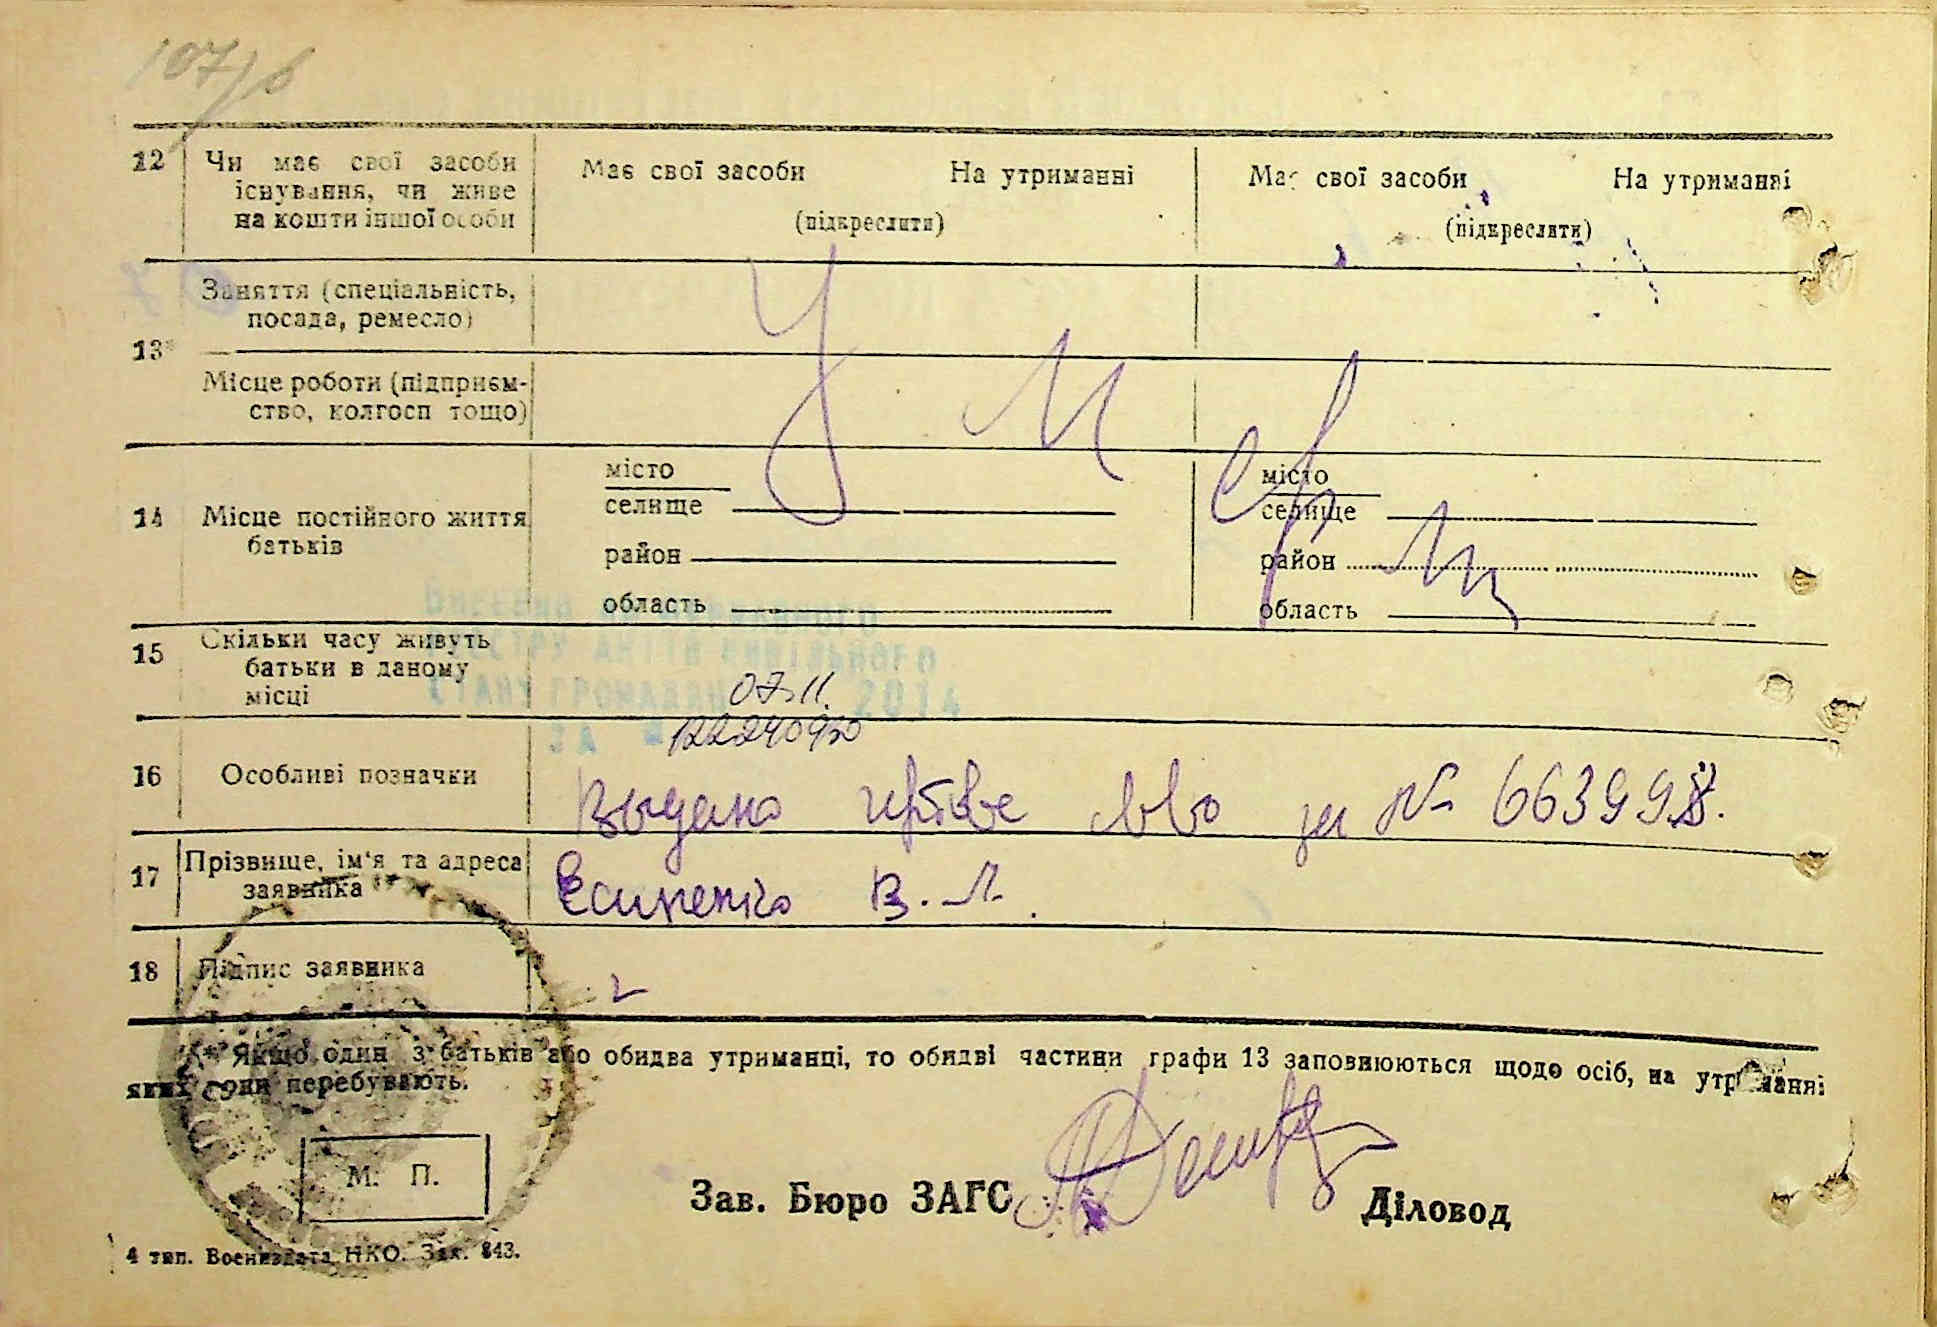 107/б
12 Чи має свої засоби існування, чи живе на кошти іншої особи
Має свої засоби На утриманні
(підкреслити)
Має свої засоби На утриманні
(підкреслити)
13* Заняття (спеціальність, посада, ремесло)
Місце роботи (підприємство, колгосп тощо)
14 Місце постійного життя батьків
місто
селище
район
область
місто
селище
район
область
15 Скільки часу живуть батьки в даному місці
ВНЕСЕНО ДО ДЕРЖАВНОГО
РЕЄСТРУ АКТІВ ЦИВІЛЬНОГО
СТАНУ ГРОМАДЯН 07.11. 2014
ЗА № 12240950
16 Особливі позначки
Выдано за № 663998.
17 Прізвище, ім'я та адреса заявника
Есипенко В.
18 Підпис заявника
* Якщо один з батьків або обидва утриманці, то обидві частини графи 13 заповнюються щодо осіб, на утриманні
яких вони перебувають.
М. П.
Зав. Бюро ЗАГС
Діловод
4 тип. Воениздата НКО. Зак. 843.